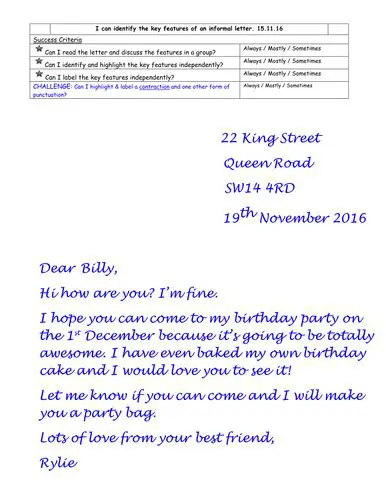 I can identify the key features of an informal letter. 15.11.16
Success Criteria
Can I read the letter and discuss the features in a group? Always / Mostly / Sometimes
Can I identify and highlight the key features independently? Always / Mostly / Sometimes
Can I label the key features independently? Always / Mostly / Sometimes
CHALLENGE: Can I highlight & label a contraction and one other form of Always / Mostly / Sometimes
punctuation?
22 King Street
Queen Road
SW14 4RD
19th November 2016
Dear Billy,
Hi how are you? I'm fine.
I hope you can come to my birthday party on
the 1st December because it's going to be totally
awesome. I have even baked my own birthday
cake and I would love you to see it!
Let me know if you can come and I will make
you a party bag.
Lots of love from your best friend,
Rylie